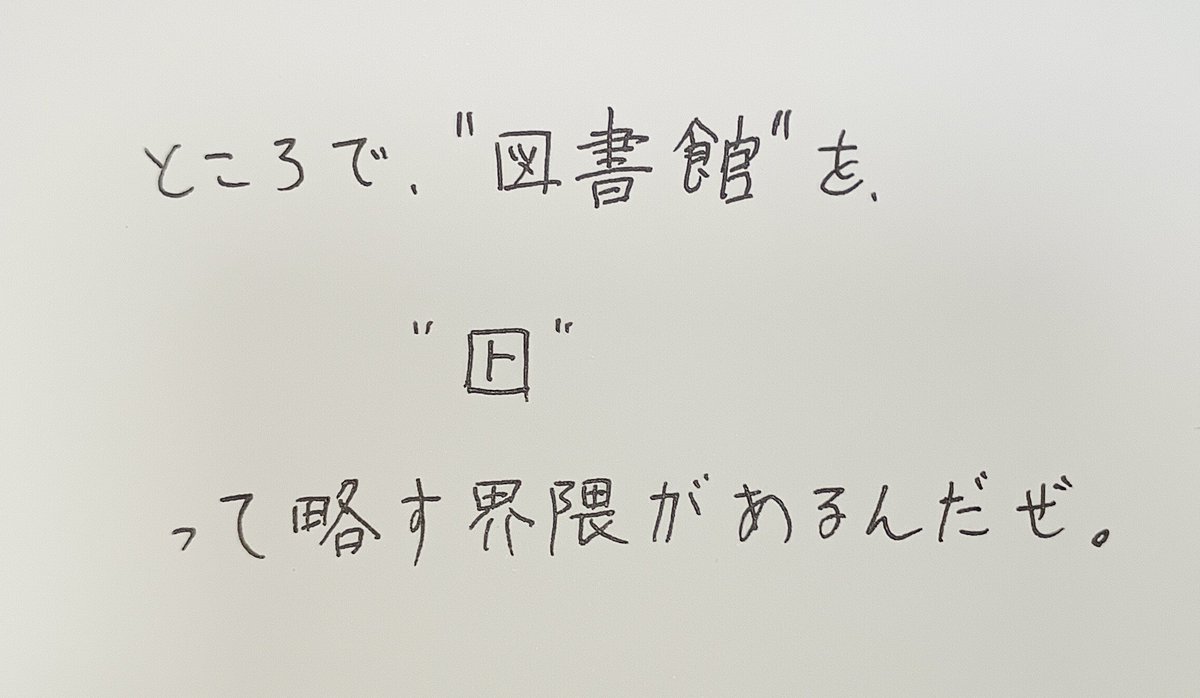 ところで、"図書館"を、
"囗ト"
って略す界隈があるんだぜ。